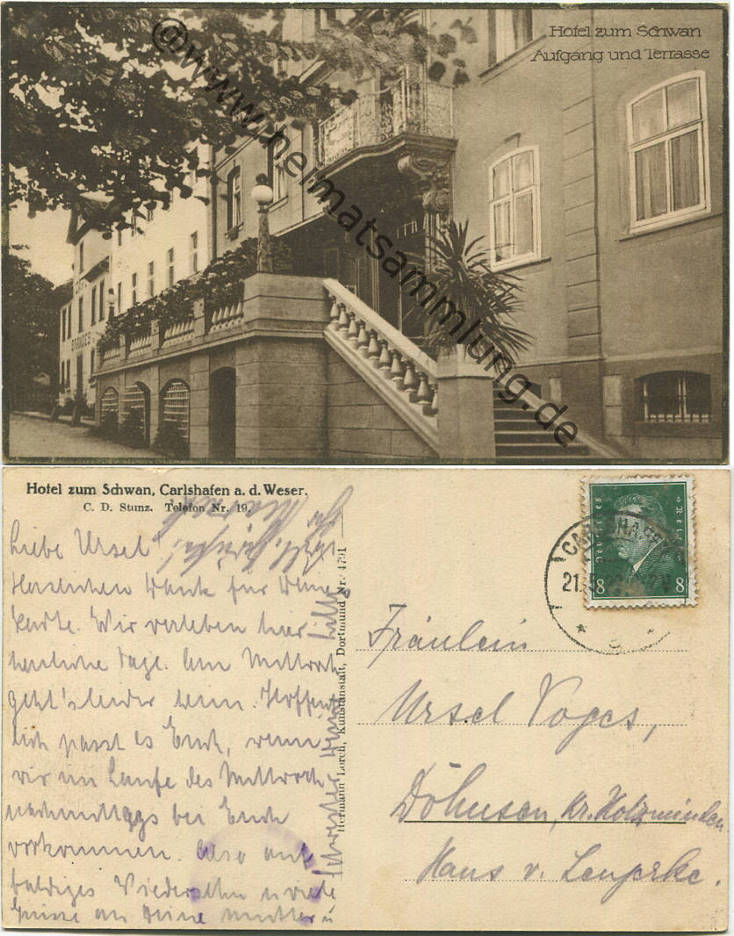 Hotel zum Schwan
Aufgang und Terrasse
©www.heimatsammlung.de
Hotel zum Schwan, Carlshafen a. d. Weser.
C. D. Stunz. Telefon Nr. 19.
Liebe Ursel
Herzlichen Dank für Deine
Karte. Wir verleben hier
herrliche Tage. Am Mittwoch
geht's leider heim. Hoffent
lich passt es Euch, wenn
wir im Laufe des Mittwoch
nachmittags bei Euch
vorkommen. Also auf
baldiges Wiedersehn u viele
Grüsse an Deine Mutter u
Hermann Lorch, Kunstanstalt, Dortmund Nr. 4791
Deutsches Reich
8 8
21
Fräulein
Ursel Voges,
Döhnsen, Kr. Holzminden.
Haus v. Lengerke.